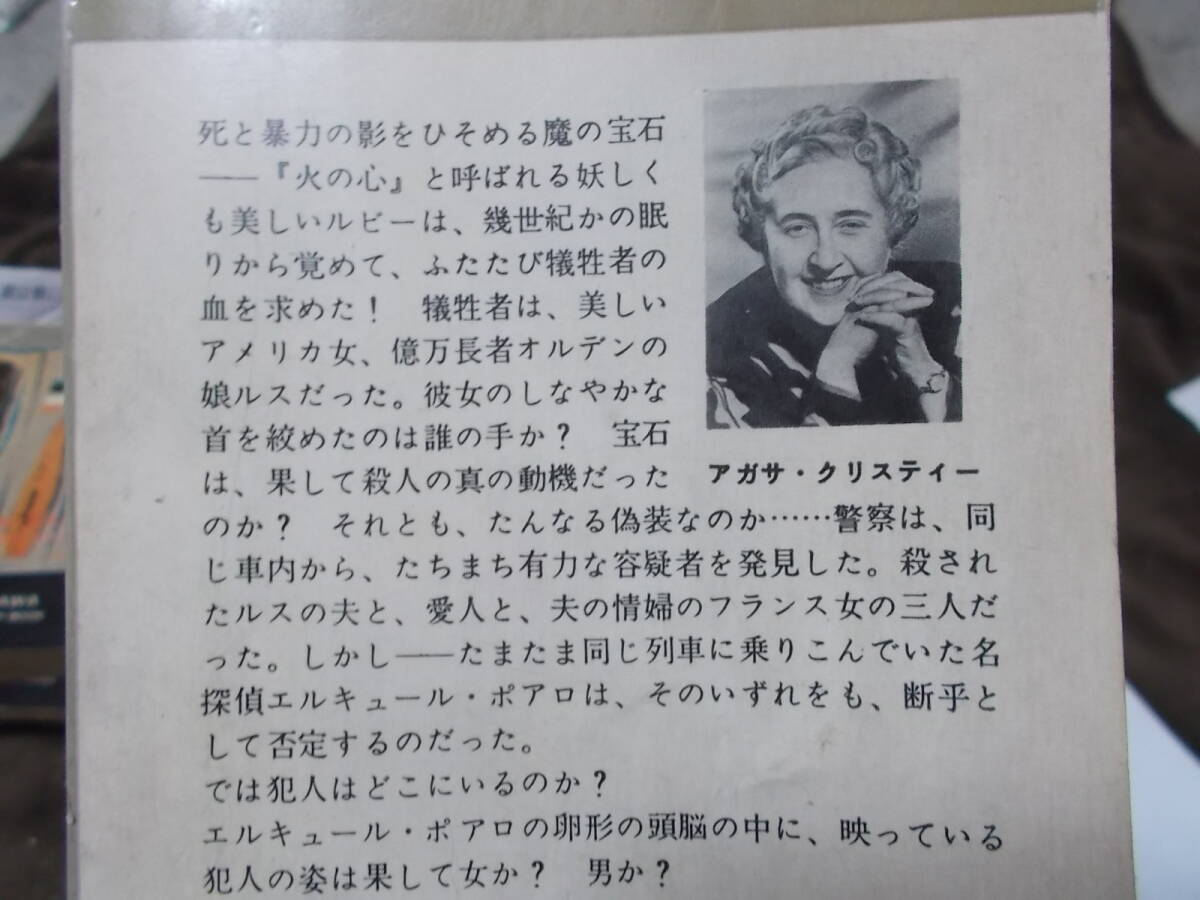 死と暴力の影をひそめる魔の宝石
――『火の心』と呼ばれる妖しく
も美しいルビーは、幾世紀かの眠
りから覚めて、ふたたび犠牲者の
血を求めた！　犠牲者は、美しい
アメリカ女、億万長者オルデンの
娘ルスだった。彼女のしなやかな
首を絞めたのは誰の手か？　宝石
は、果して殺人の真の動機だった
アガサ・クリスティー
のか？　それとも、たんなる偽装なのか……警察は、同
じ車内から、たちまち有力な容疑者を発見した。殺され
たルスの夫と、愛人と、夫の情婦のフランス女の三人だ
った。しかし――たまたま同じ列車に乗りこんでいた名
探偵エルキュール・ポアロは、そのいずれをも、断乎と
して否定するのだった。
では犯人はどこにいるのか？
エルキュール・ポアロの卵形の頭脳の中に、映っている
犯人の姿は果して女か？　男か？